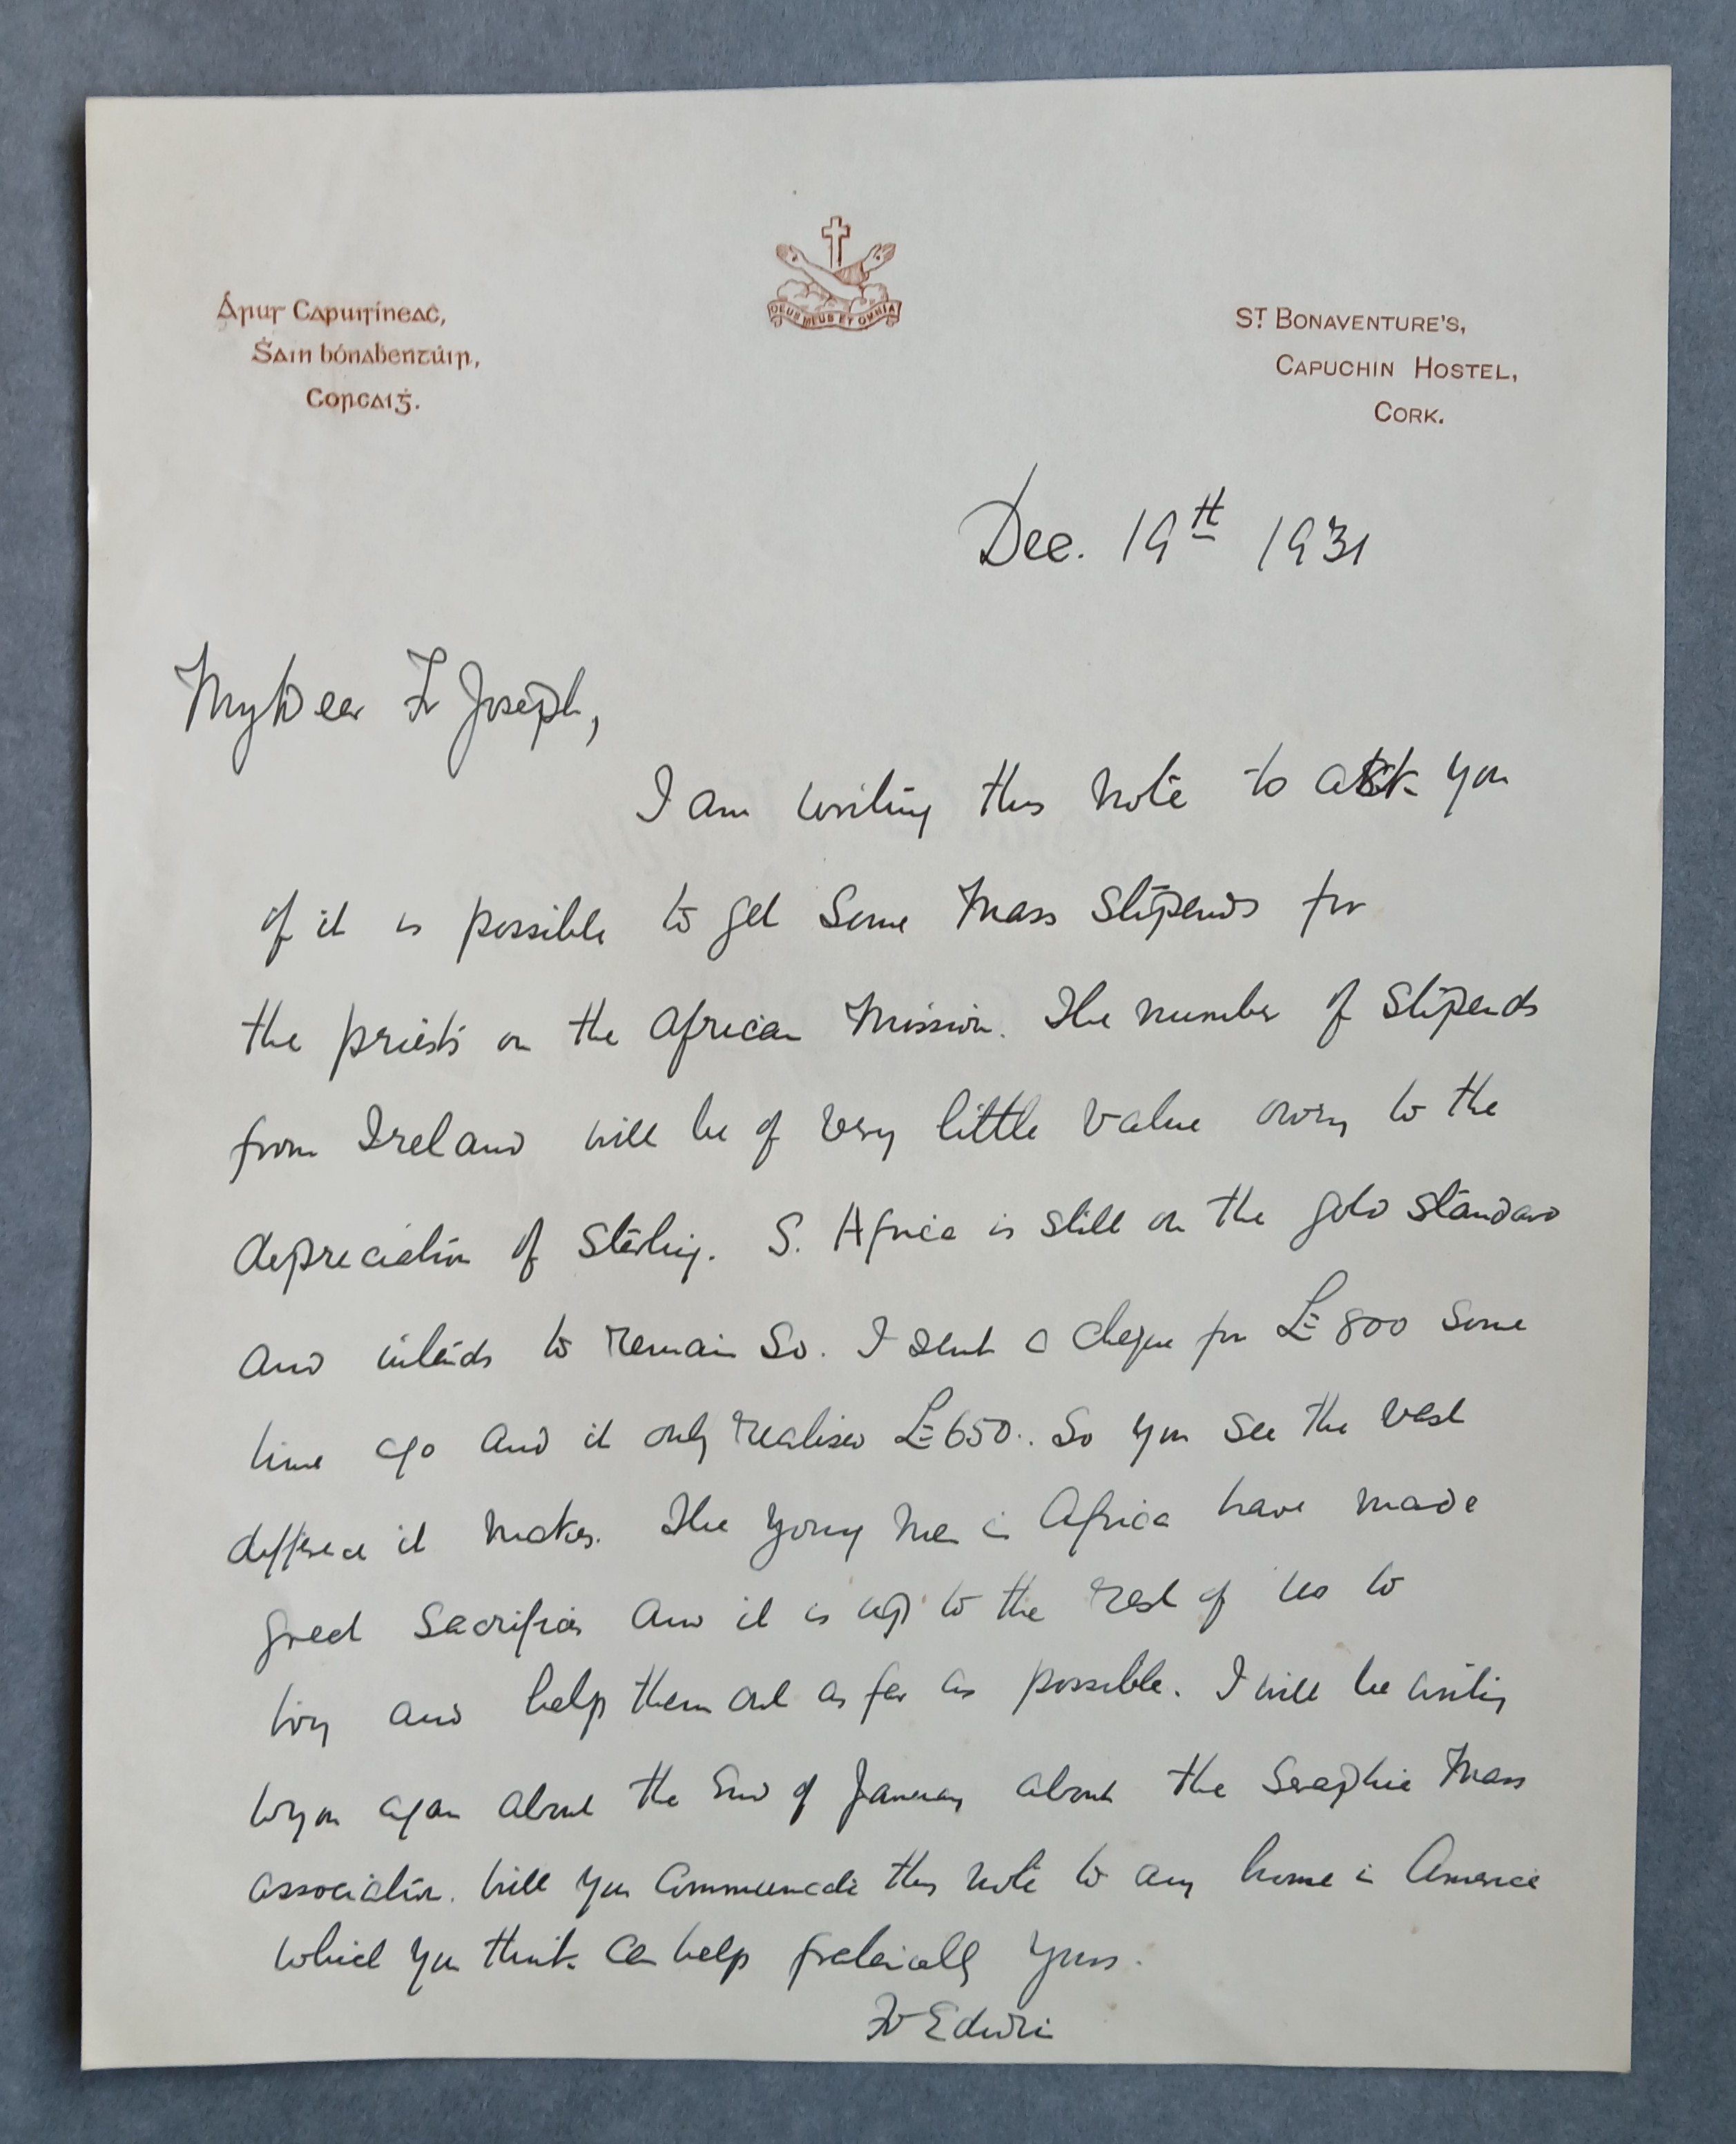 Árus Capuisíneaċ,
Ṡain bónabentúir,
Corcaiġ.
DEUS MEUS ET OMNIA
ST BONAVENTURE'S,
CAPUCHIN HOSTEL,
CORK.
Dec. 19th 1931
My Dear Fr Joseph,
I am writing this note to ask you
if it is possible to get some Mass Stipends for
the priests on the African Mission. The number of Stipends
from Ireland will be of very little value owing to the
depreciation of Sterling. S. Africa is still on the gold standard
and intends to remain so. I sent a cheque for £800 some
time ago and it only realised £650. So you see the vast
difference it makes. The young men in Africa have made
great sacrifices and it is up to the rest of us to
try and help them out as far as possible. I will be writing
to you again about the end of January about the Seraphic Mass
association. Will you communicate this note to any home in America
which you think can help fraternally yours.
Fr Edwin